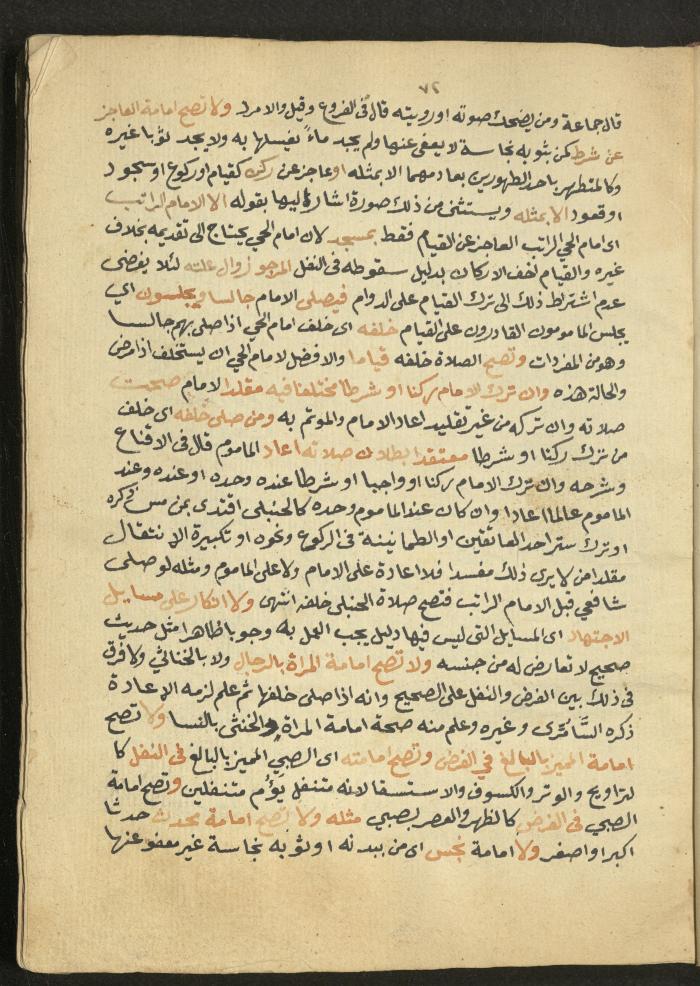 ٧٢
قال جماعة ومن يضحك صوته او رويته قال في الفروع وقيل والامرد ولا تصح امامة العاجز
عن شرط كمن بثوبه نجاسة لا يعفى عنها ولم يجد ماءً يغسلها به ولا يجد ثوبا غيره
وكالمتطهر باحد الطهورين بعادمهما الا بمثله او عاجز عن ركن كقيام او ركوع او سجود
او قعود الا بمثله ويستثنى من ذلك صورة اشار اليها بقوله الا الامام الراتب
اى امام الحي الراتب العاجز عن القيام فقط بمسجد لان امام الحي يحتاج الى تقديمه بخلاف
غيره والقيام اخف الاركان بدليل سقوطه في النفل المرجو زوال علته لئلا يفضى
عدم اشتراط ذلك الى ترك القيام على الدوام فيصلى الامام جالسا ويجلسون اي
يجلس المامومون القادرون على القيام خلفه اى خلف امام الحي اذا صلى بهم جالسا
وهو من المفردات وتصح الصلاة خلفه قياما والافضل لامام الحي ان يستخلف اذا مرض
والحالة هذه وان ترك الامام ركنا او شرطا مختلفا فيه مقلدا الامام صحت
صلاته وان تركه من غير تقليد اعاد الامام والموتم به ومن صلى خلفه اى خلف
من ترك ركنا او شرطا معتقدا بطلان صلاته اعاد الماموم قال في الاقناع
وشرحه وان ترك الامام ركنا او واجبا او شرطا عنده وحده او عنده وعند
الماموم عالما اعادا وان كان عند الماموم وحده كالحنبلى اقتدى بمن مس ذكره
او ترك ستر احد العاتقين او الطمانينة في الركوع ونحوه او تكبيرة الانتقال
مقلدا من لا يرى ذلك مفسدا فلا اعادة على الامام ولا على الماموم ومثله لو صلى
شافعي قبل الامام الراتب فتصح صلاة الحنبلى خلفه انتهى ولا انكار على مسايل
الاجتهاد اى المسايل التى ليس فيها دليل يجب العمل به وجوبا ظاهرا مثل حديث
صحيح لا تعارض له من جنسه ولا تصح امامة المراة بالرجال ولا بالخناثي ولا فرق
في ذلك بين الفرض والنفل على الصحيح وانه اذا صلى خلفها ثم علم لزمه الاعادة
ذكره السَّامُرّى وغيره وعلم منه صحة امامة المراة والخنثى بالنسا ولا تصح
امامة المميز بالبالغ في الفرض وتصح امامته اى الصبي المميز بالبالغ في النفل كا
لتراويح والوتر والكسوف والاستسقا لانه متنفل يؤم متنفلين وتصح امامة
الصبي في الفرض كالظهر والعصر بصبي مثله ولا تصح امامة محدث حدثا
اكبر او اصغر ولا امامة نجس اى من ببدنه او ثوبه نجاسة غير معفو عنها